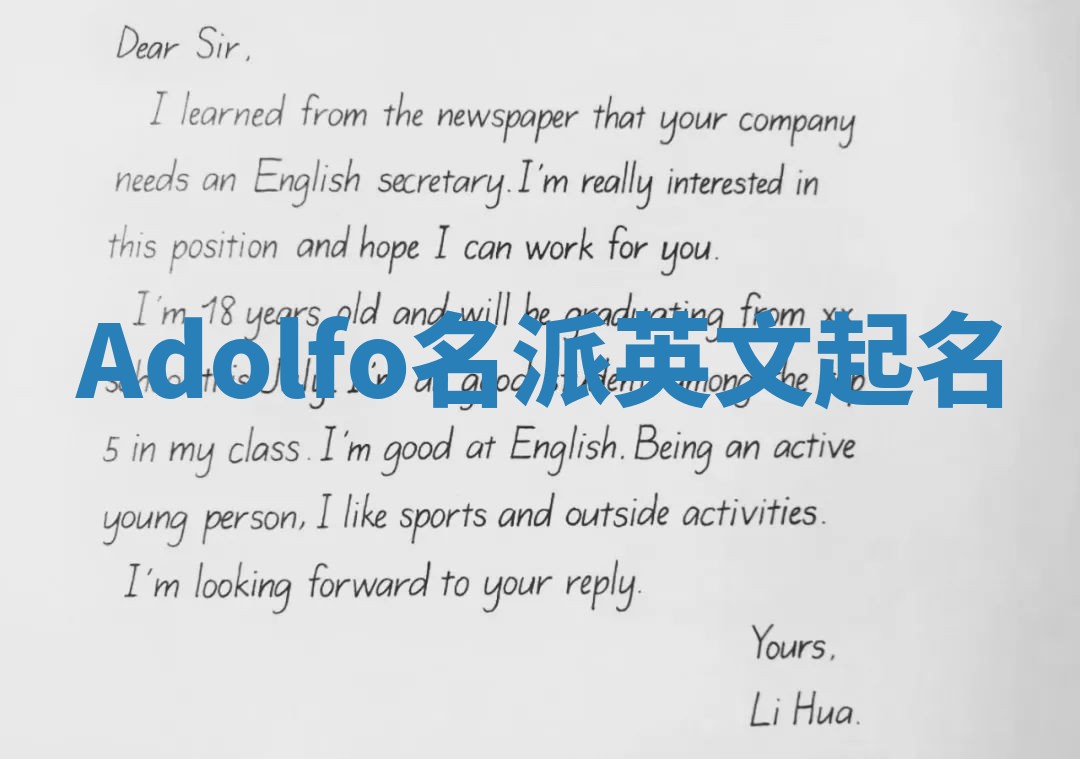 Dear Sir,
I learned from the newspaper that your company
needs an English secretary. I'm really interested in
this position and hope I can work for you.
I'm 18 years old and will be graduating from xx
Adolfo名派英文起名
school this July. I'm a good student among the top
5 in my class. I'm good at English. Being an active
young person, I like sports and outside activities.
I'm looking forward to your reply.
Yours,
Li Hua.